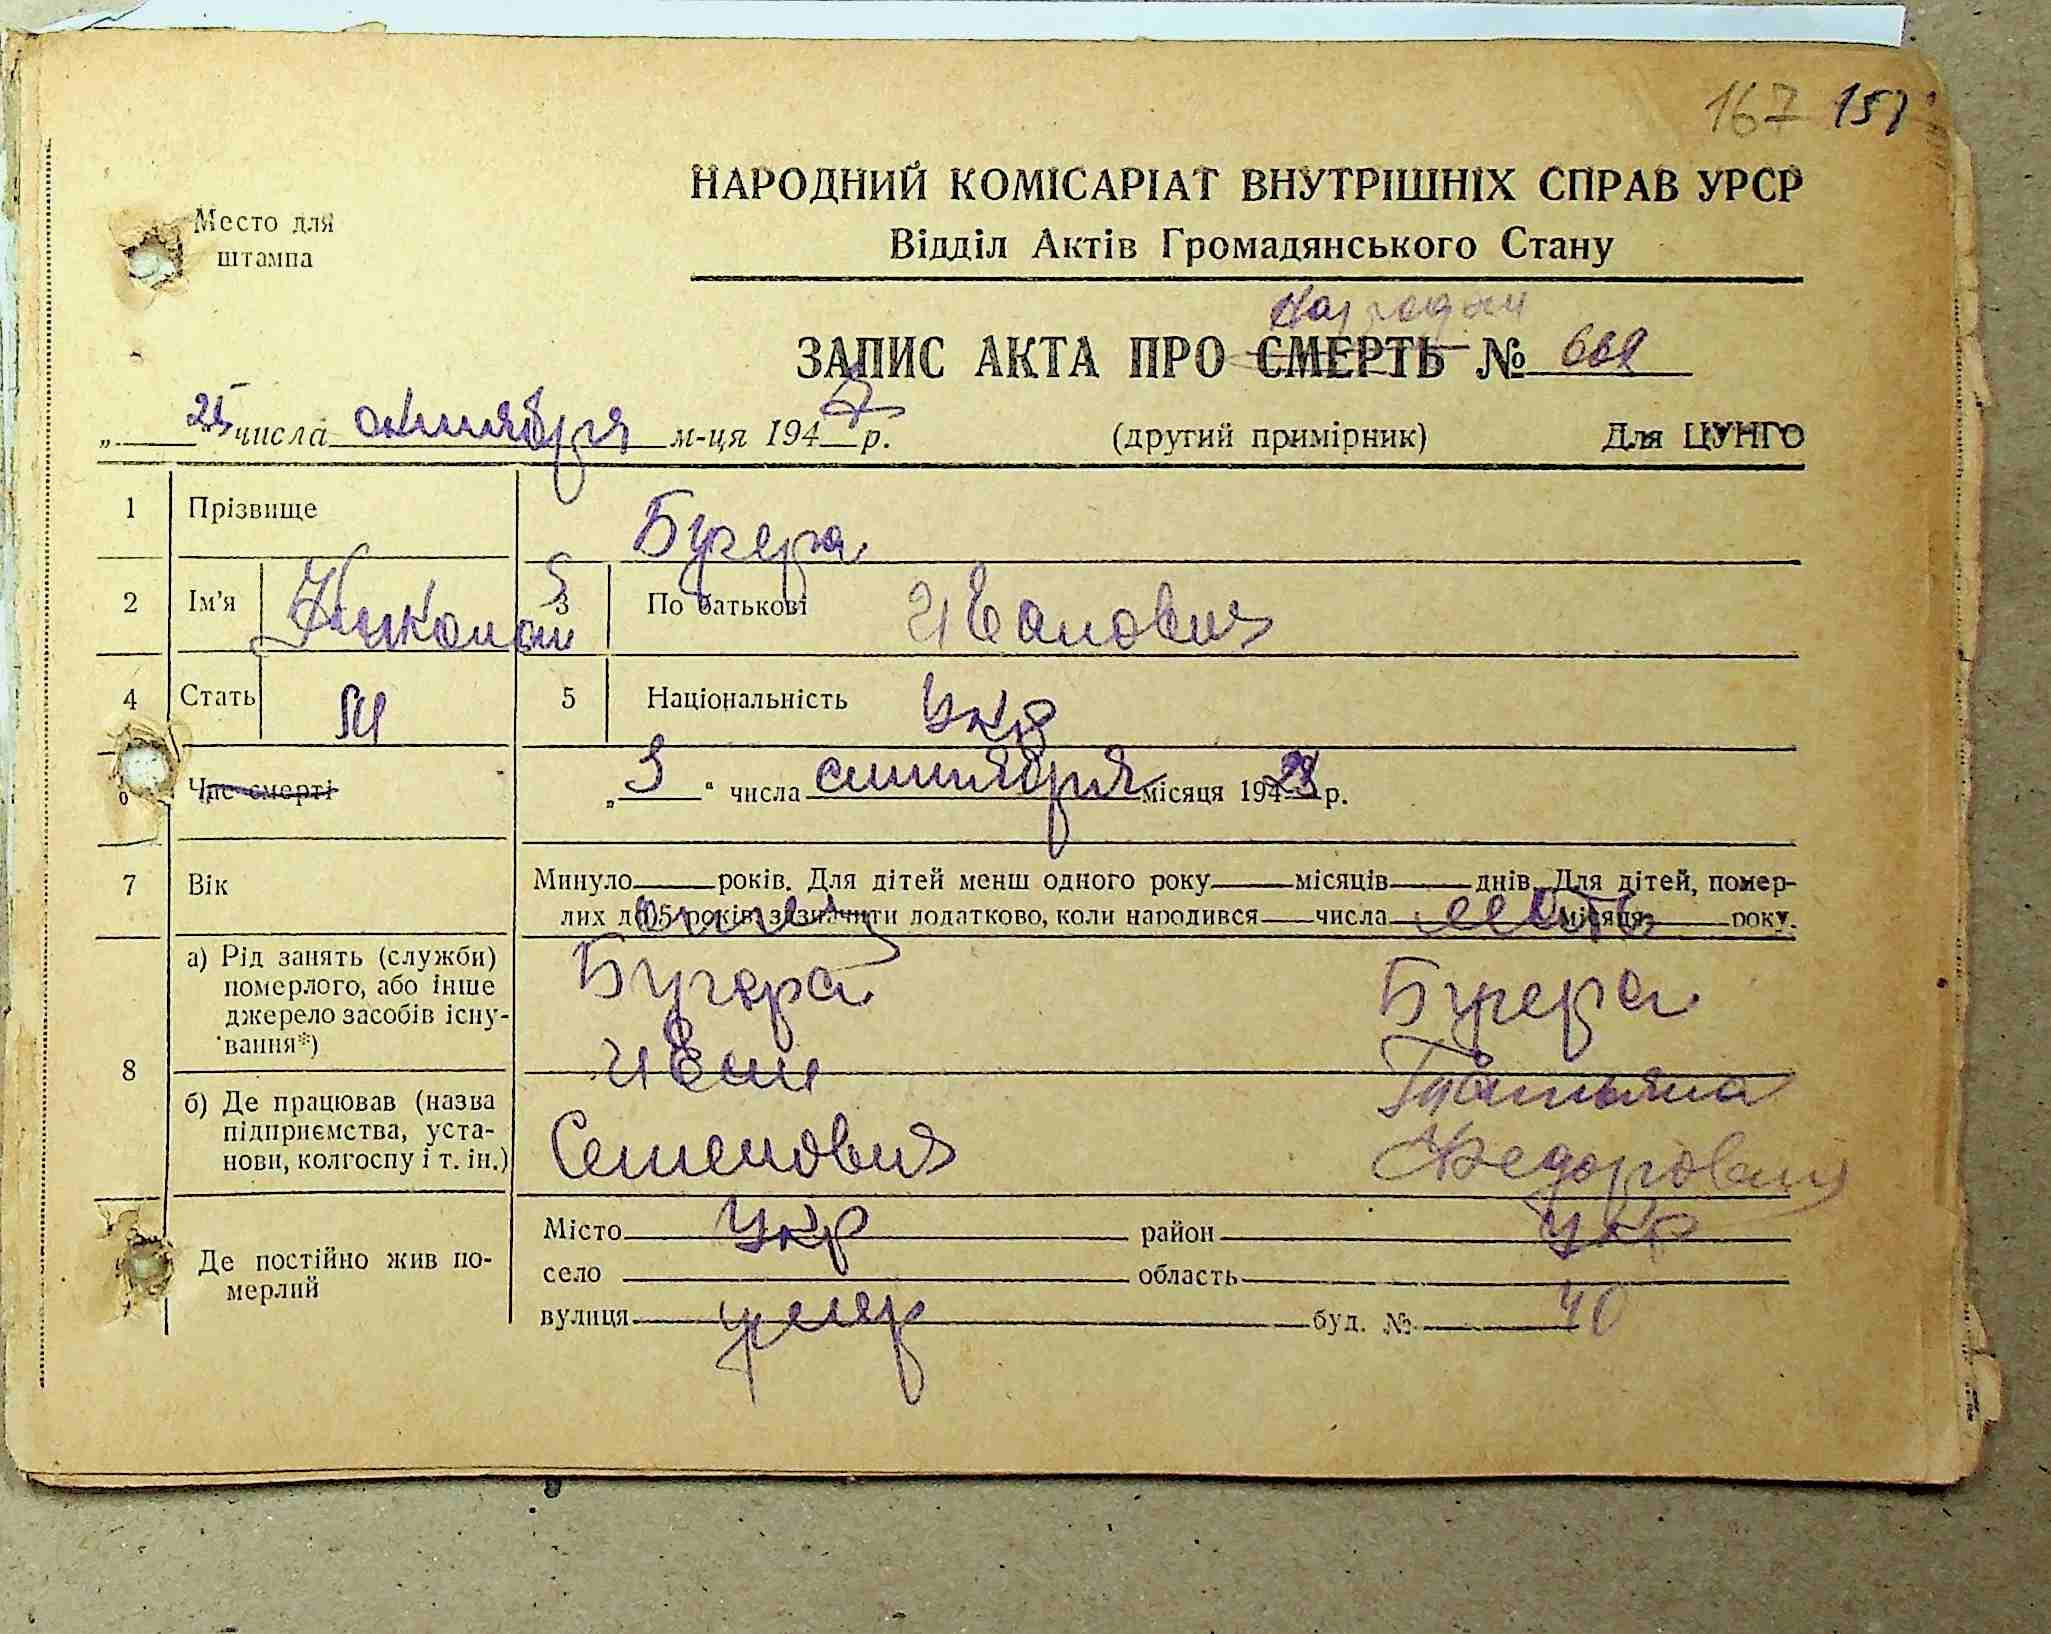 167 151
НАРОДНИЙ КОМІСАРІАТ ВНУТРІШНІХ СПРАВ УРСР
Место для штампа
Відділ Актів Громадянського Стану
ЗАПИС АКТА ПРО СМЕРТЬ №
„ 25 числа октября м-ця 1947 р. (другий примірник) Для ЦУНГО
1 Прізвище Бугера
2 Ім'я Николай 3 По батькові Иванович
4 Стать М 5 Національність Укр
6 Час смерті „ 3 " числа сентября місяця 194 р.
7 Вік Минуло років. Для дітей менш одного року місяців днів. Для дітей, помер-
лих до 5 років, зазначити додатково, коли народився числа місяця року.
отец мать
8 а) Рід занять (служби) померлого, або інше джерело засобів існу-вання*)
Бугера Бугера
Иван Татьяна
б) Де працював (назва підприємства, уста-нови, колгоспу і т. ін.)
Семенович Федоровна
Де постійно жив по-мерлий
Місто Укр район Укр
село область
вулиця буд. № 40